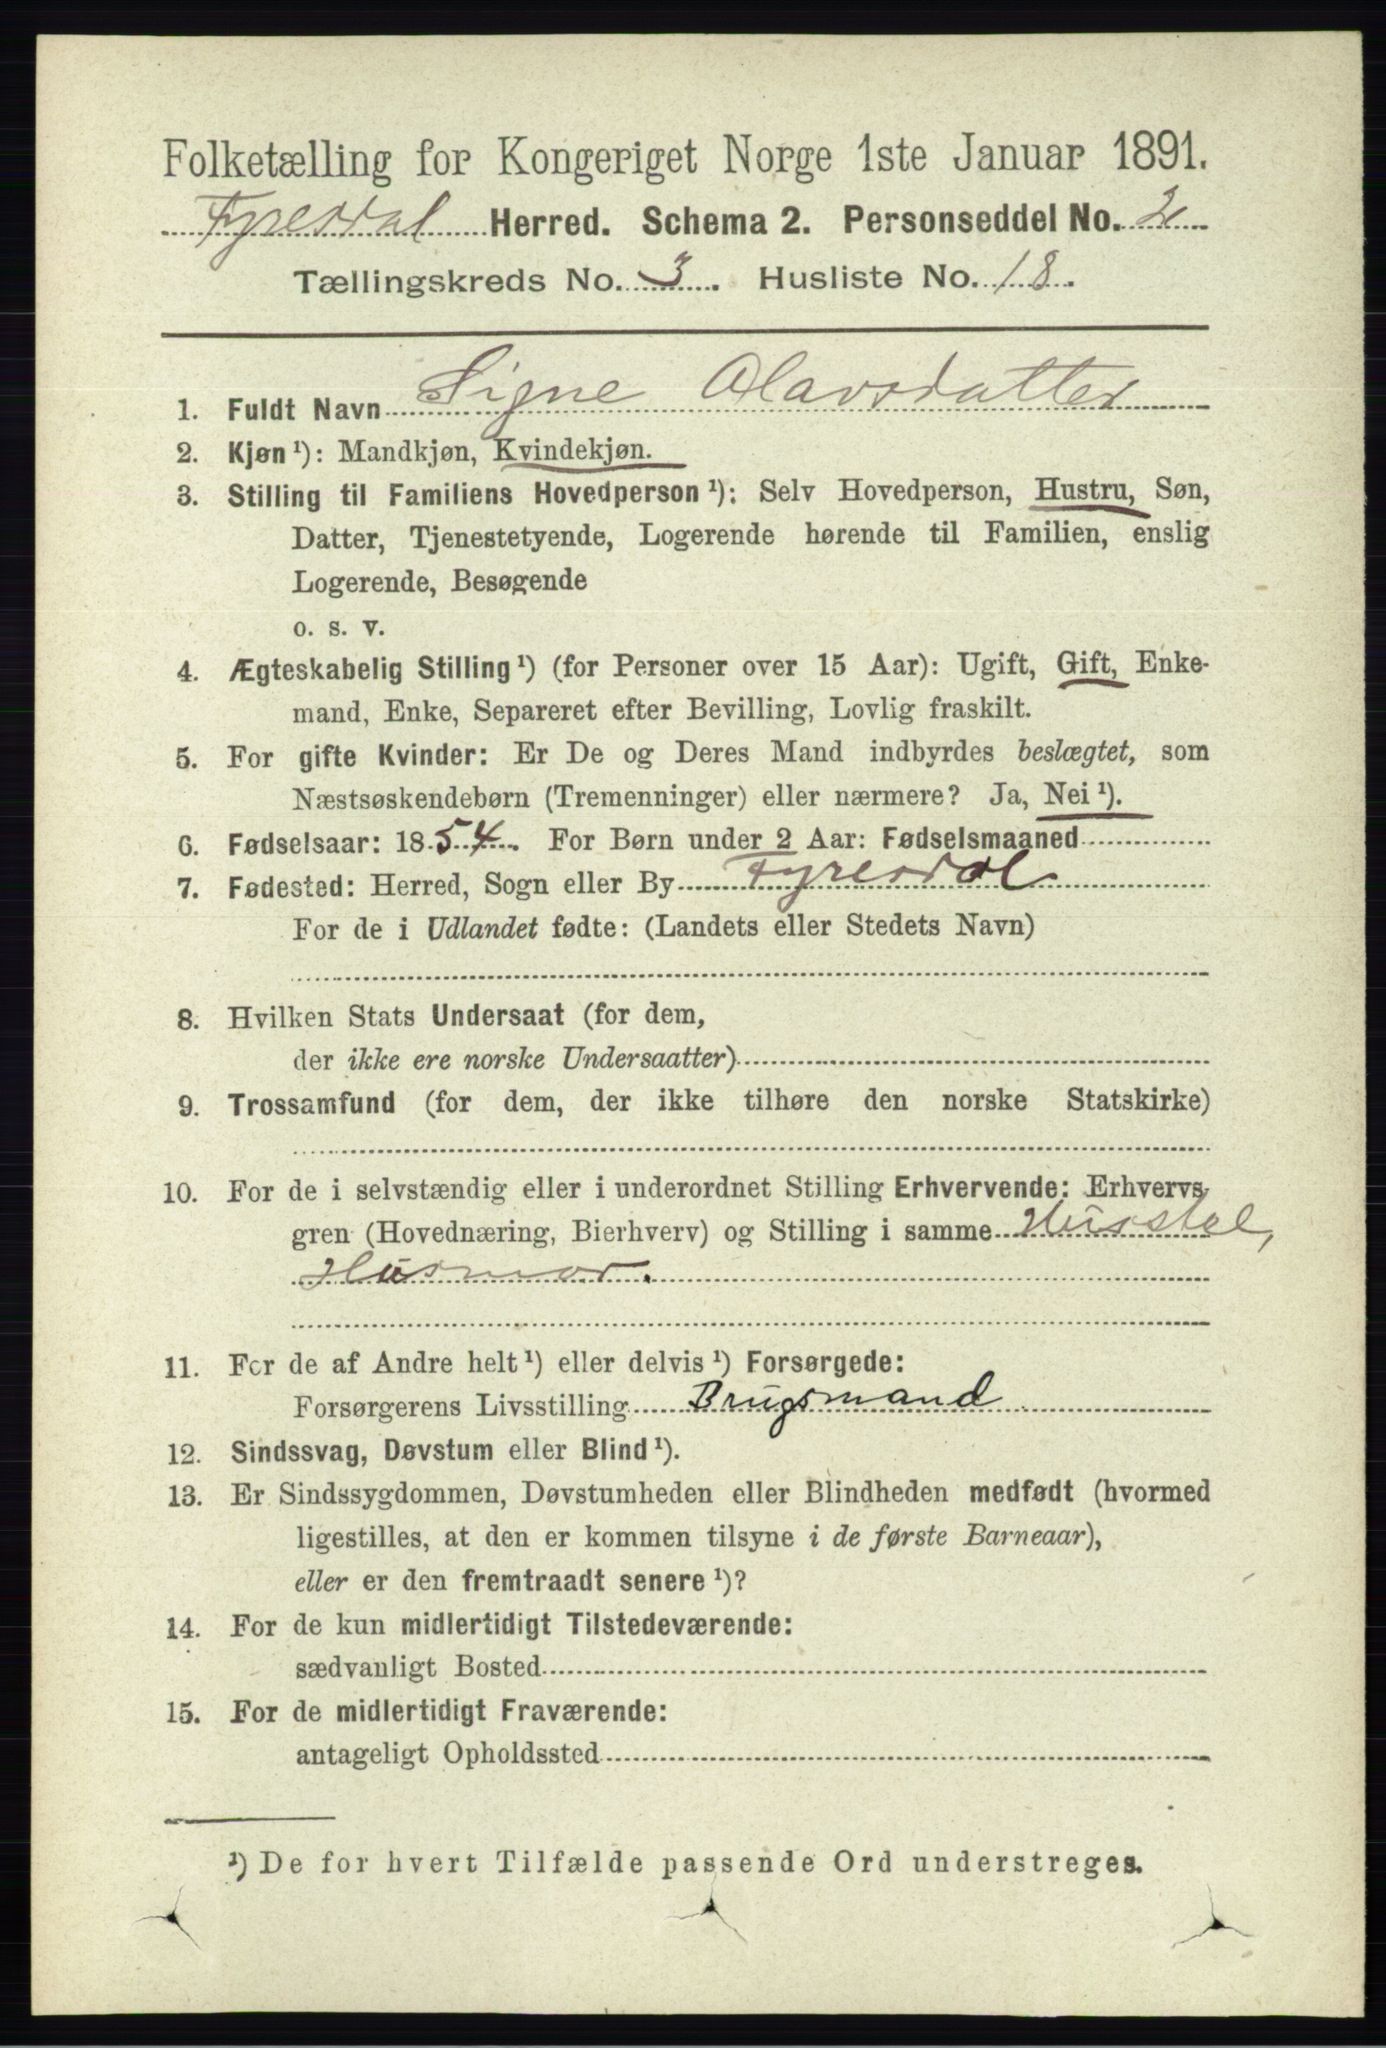 Folketælling for Kongeriget Norge 1ste Januar 1891.
Fyresdal Herred. Schema 2. Personseddel No. 2
Tællingskreds No. 3. Husliste No. 18.
1. Fuldt Navn Signe Olavsdatter
2. Kjøn ¹): Mandkjøn, Kvindekjøn.
3. Stilling til Familiens Hovedperson ¹): Selv Hovedperson, Hustru, Søn,
Datter, Tjenestetyende, Logerende hørende til Familien, enslig
Logerende, Besøgende
o. s. v.
4. Ægteskabelig Stilling ¹) (for Personer over 15 Aar): Ugift, Gift, Enke-
mand, Enke, Separeret efter Bevilling, Lovlig fraskilt.
5. For gifte Kvinder: Er De og Deres Mand indbyrdes beslægtet, som
Næstsøskendebørn (Tremenninger) eller nærmere? Ja, Nei ¹).
6. Fødselsaar: 1854. For Børn under 2 Aar: Fødselsmaaned
7. Fødested: Herred, Sogn eller By Fyresdal
For de i Udlandet fødte: (Landets eller Stedets Navn)
8. Hvilken Stats Undersaat (for dem,
der ikke ere norske Undersaatter)
9. Trossamfund (for dem, der ikke tilhøre den norske Statskirke)
10. For de i selvstændig eller i underordnet Stilling Erhvervende: Erhvervs-
gren (Hovednæring, Bierhverv) og Stilling i samme Husstel,
Husmor.
11. For de af Andre helt ¹) eller delvis ¹) Forsørgede:
Forsørgerens Livsstilling Brugsmand
12. Sindssvag, Døvstum eller Blind ¹).
13. Er Sindssygdommen, Døvstumheden eller Blindheden medfødt (hvormed
ligestilles, at den er kommen tilsyne i de første Barneaar),
eller er den fremtraadt senere ¹)?
14. For de kun midlertidigt Tilstedeværende:
sædvanligt Bosted
15. For de midlertidigt Fraværende:
antageligt Opholdssted
¹) De for hvert Tilfælde passende Ord understreges.